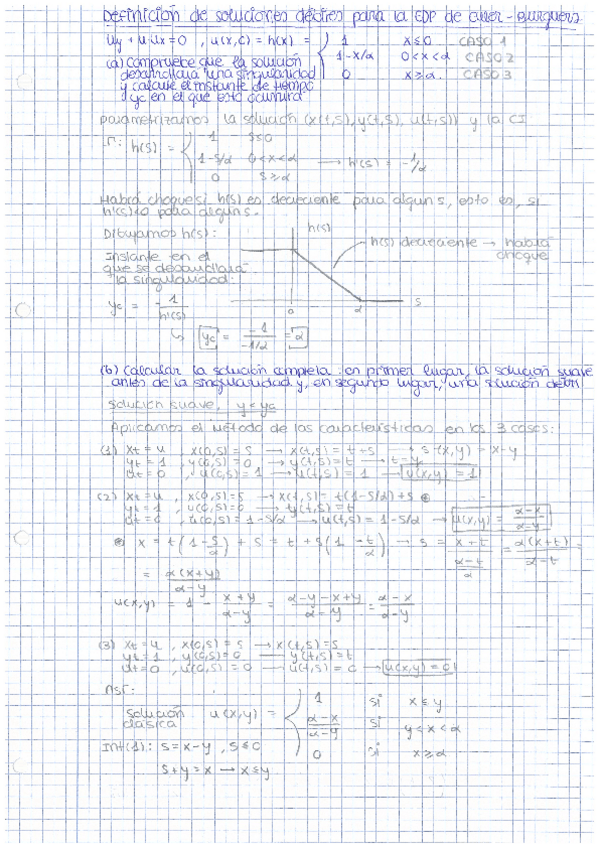 Definición de soluciones débiles para la EDP de Euler-Burguers
Uy + u·Ux = 0 , u(x,0) = h(x) = { 1 x≤0 CASO 1
1-x/α 0<x<α CASO 2
0 x≥α. CASO 3
(a) Compruebe que la solución
desarrollará una singularidad
y calcule el instante de tiempo
yc en el que esto ocurrirá
Parametrizamos la solución (x(t,s), y(t,s), u(t,s)) y la CI
Γ: h(s) = { 1 s≤0
1-s/α 0<x<α → h'(s) = -1/α
0 s≥α
Habrá choque si h(s) es decreciente para algún s, esto es, si
h'(s)<0 para algún s.
Dibujamos h(s):
h(s)
h(s) decreciente → habrá
choque
Instante en el
que se desarrollará
la singularidad:
0 α s
yc = - 1/h'(s)
↳ yc = -1/(-1/α) = α
(b) Calcular la solución completa: en primer lugar, la solución suave
antes de la singularidad y, en segundo lugar, una solución débil
Solución suave, y<yc
Aplicamos el método de las características en los 3 casos:
(1) xt = u , x(0,s) = s → x(t,s) = t+s → s(x,y) = x-y
yt = 1 , y(0,s) = 0 → y(t,s) = t → t=y
ut = 0 , u(0,s) = 1 → u(t,s) = 1 → u(x,y) = 1
(2) xt = u , x(0,s) = s → x(t,s) = t(1-s/α)+s ⊛
yt = 1 , y(0,s) = 0 → y(t,s) = t
ut = 0 , u(0,s) = 1-s/α → u(t,s) = 1-s/α → u(x,y) = (α-x)/(α-y)
⊛ x = t(1 - s/α) + s = t + s(1 - t/α) → s = (x+t)/((α-t)/α) = α(x+t)/(α-t) =
= α(x+y)/(α-y)
u(x,y) = 1 - (x+y)/(α-y) = (α-y-x+y)/(α-y) = (α-x)/(α-y)
(3) xt = u , x(0,s) = s → x(t,s) = s
yt = 1 , y(0,s) = 0 → y(t,s) = t
ut = 0 , u(0,s) = 0 → u(t,s) = 0 → u(x,y) = 0
Así:
Solución
clásica u(x,y) = { 1 si x≤y
(α-x)/(α-y) si y<x<α
0 si x≥α
Int(1): s = x-y , s≤0
s+y = x → x≤y